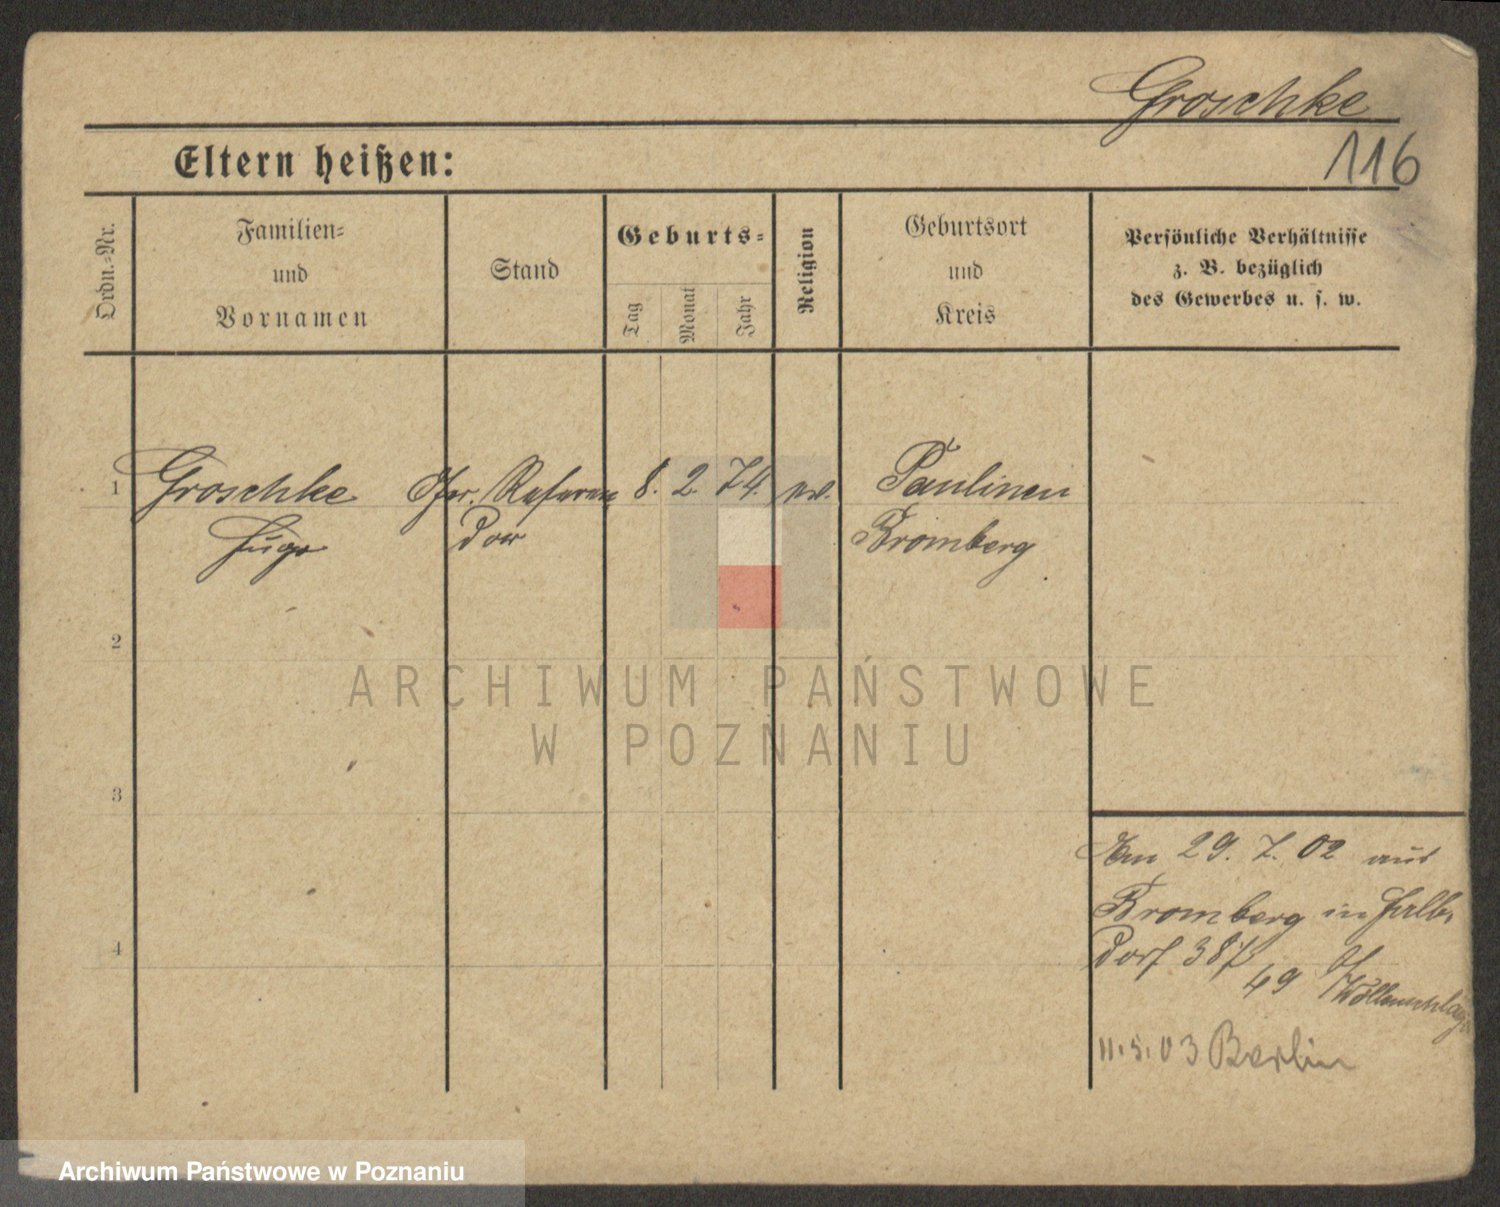 Groschke
116
Eltern heißen:
Ordn.-Nr.
Familien-
und
Vornamen
Stand
Geburts-
Tag
Monat
Jahr
Religion
Geburtsort
und
Kreis
Persönliche Verhältnisse
z. B. bezüglich
des Gewerbes u. s. w.
1 Groschke Referen 8. 2. 74. ev. Paulinen
Hugo dar Bromberg
2
3
4
ARCHIWUM PAŃSTWOWE
W POZNANIU
Am 29. 7. 02 aus
Bromberg in Halb-
dorf 38
49
11.5.03 Berlin
Archiwum Państwowe w Poznaniu